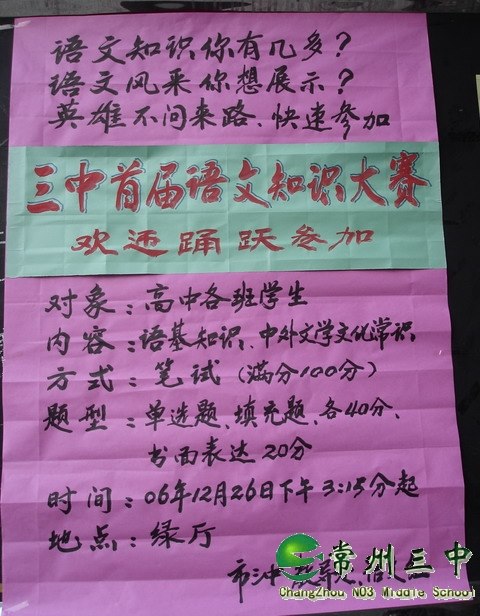 语文知识你有几多？
语文风采你想展示？
英雄不问来路、快速参加
三中首届语文知识大赛
欢迎踊跃参加
对象：高中各班学生
内容：语基知识、中外文学文化常识
方式：笔试（满分100分）
题型：单选题、填充题、各40分、
书面表达20分
时间：06年12月26日下午3:15分起
地点：绿厅
市三中
常州三中
ChangZhou NO3 Middle School